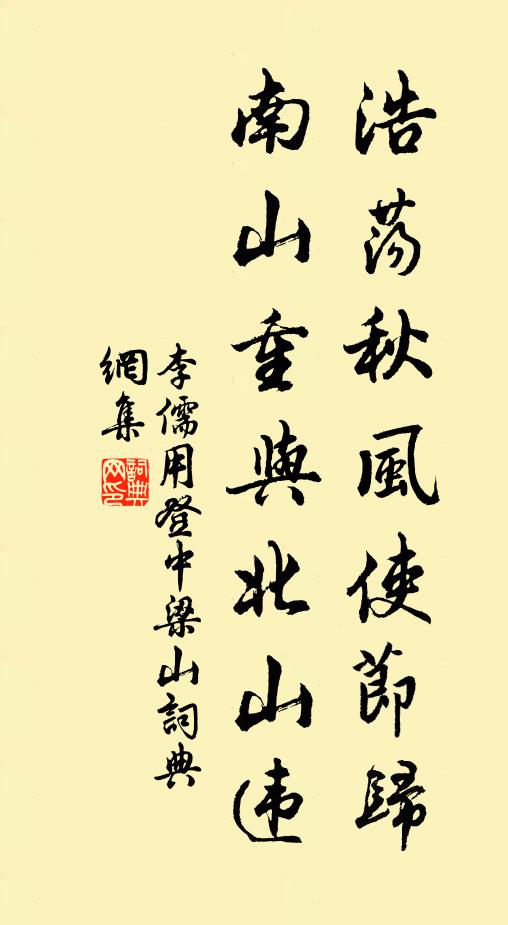 浩荡秋風使節歸
南山重與北山违
李儒用登中梁山詞典
網集
詞典網印